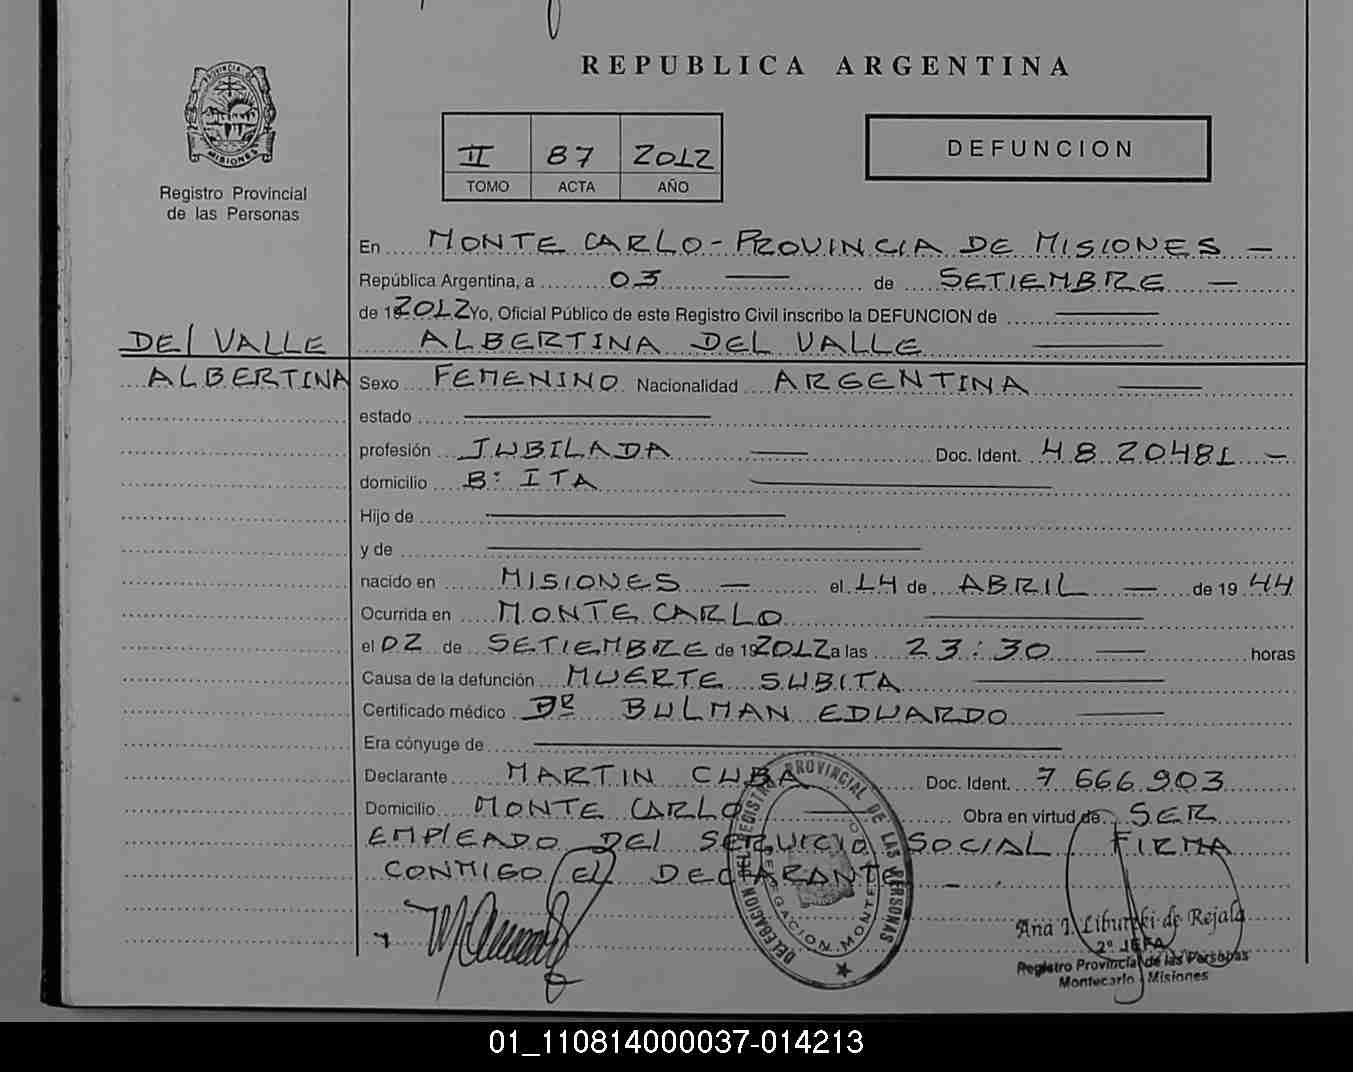 REPUBLICA ARGENTINA
PROVINCIA DE
MISIONES
Registro Provincial
de las Personas
II 87 2012
TOMO ACTA AÑO
DEFUNCION
En MONTE CARLO - PROVINCIA DE MISIONES —
República Argentina, a 03 — de SETIEMBRE —
de 19 2012 Yo, Oficial Público de este Registro Civil inscribo la DEFUNCION de —
DEL VALLE ALBERTINA DEL VALLE —
ALBERTINA Sexo FEMENINO Nacionalidad ARGENTINA —
estado —
profesión JUBILADA — Doc. Ident. 4.820481 —
domicilio Bº ITA —
Hijo de —
y de —
nacido en MISIONES — el 14 de ABRIL — de 19 44
Ocurrida en MONTE CARLO —
el 02 de SETIEMBRE de 19 2012 a las 23:30 — horas
Causa de la defunción MUERTE SUBITA —
Certificado médico DR BULMAN EDUARDO —
Era cónyuge de —
Declarante MARTIN CUBA Doc. Ident. 7 666.903
Domicilio MONTE CARLO — Obra en virtud de SER
EMPLEADO DEL SERVICIO SOCIAL FIRMA
CONMIGO EL DECLARANTE —
DELEGACION DEL REGISTRO PROVINCIAL DE LAS PERSONAS
DELEGACION MONTE
Ana I. Liburski de Rejala
2º JEFA
Registro Provincial de las Personas
Montecarlo - Misiones
01_110814000037-014213